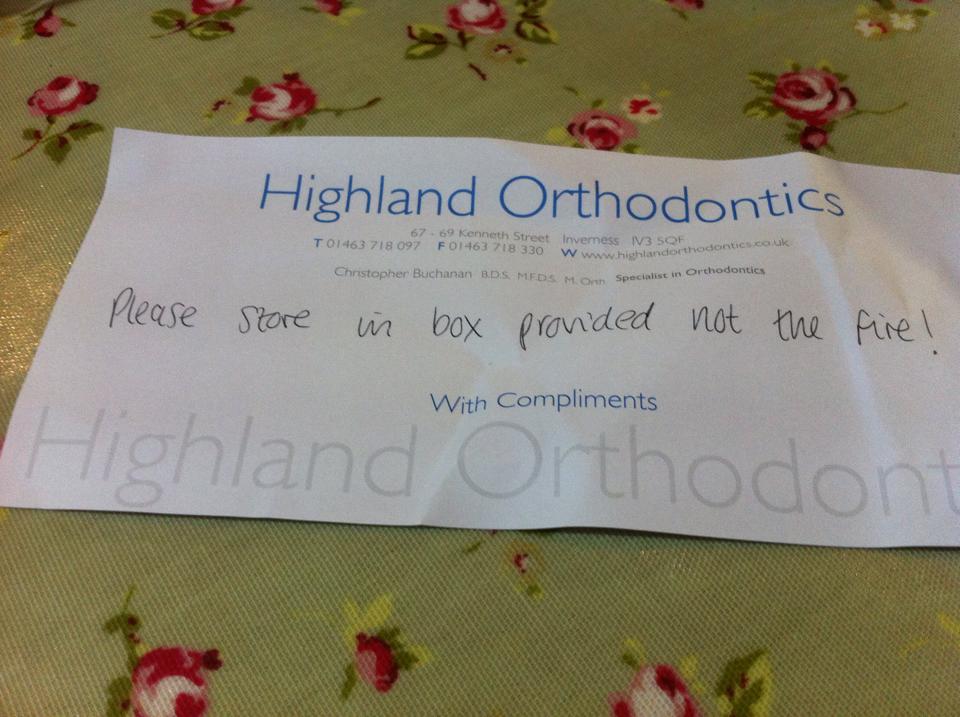 Highland Orthodontics
67 - 69 Kenneth Street Inverness IV3 5QF
T 01463 718 097 F 01463 718 330 W www.highlandorthodontics.co.uk
Christopher Buchanan B.D.S. M.F.D.S. M. Orth Specialist in Orthodontics
Please store in box provided not the fire!
With Compliments
Highland Orthodont